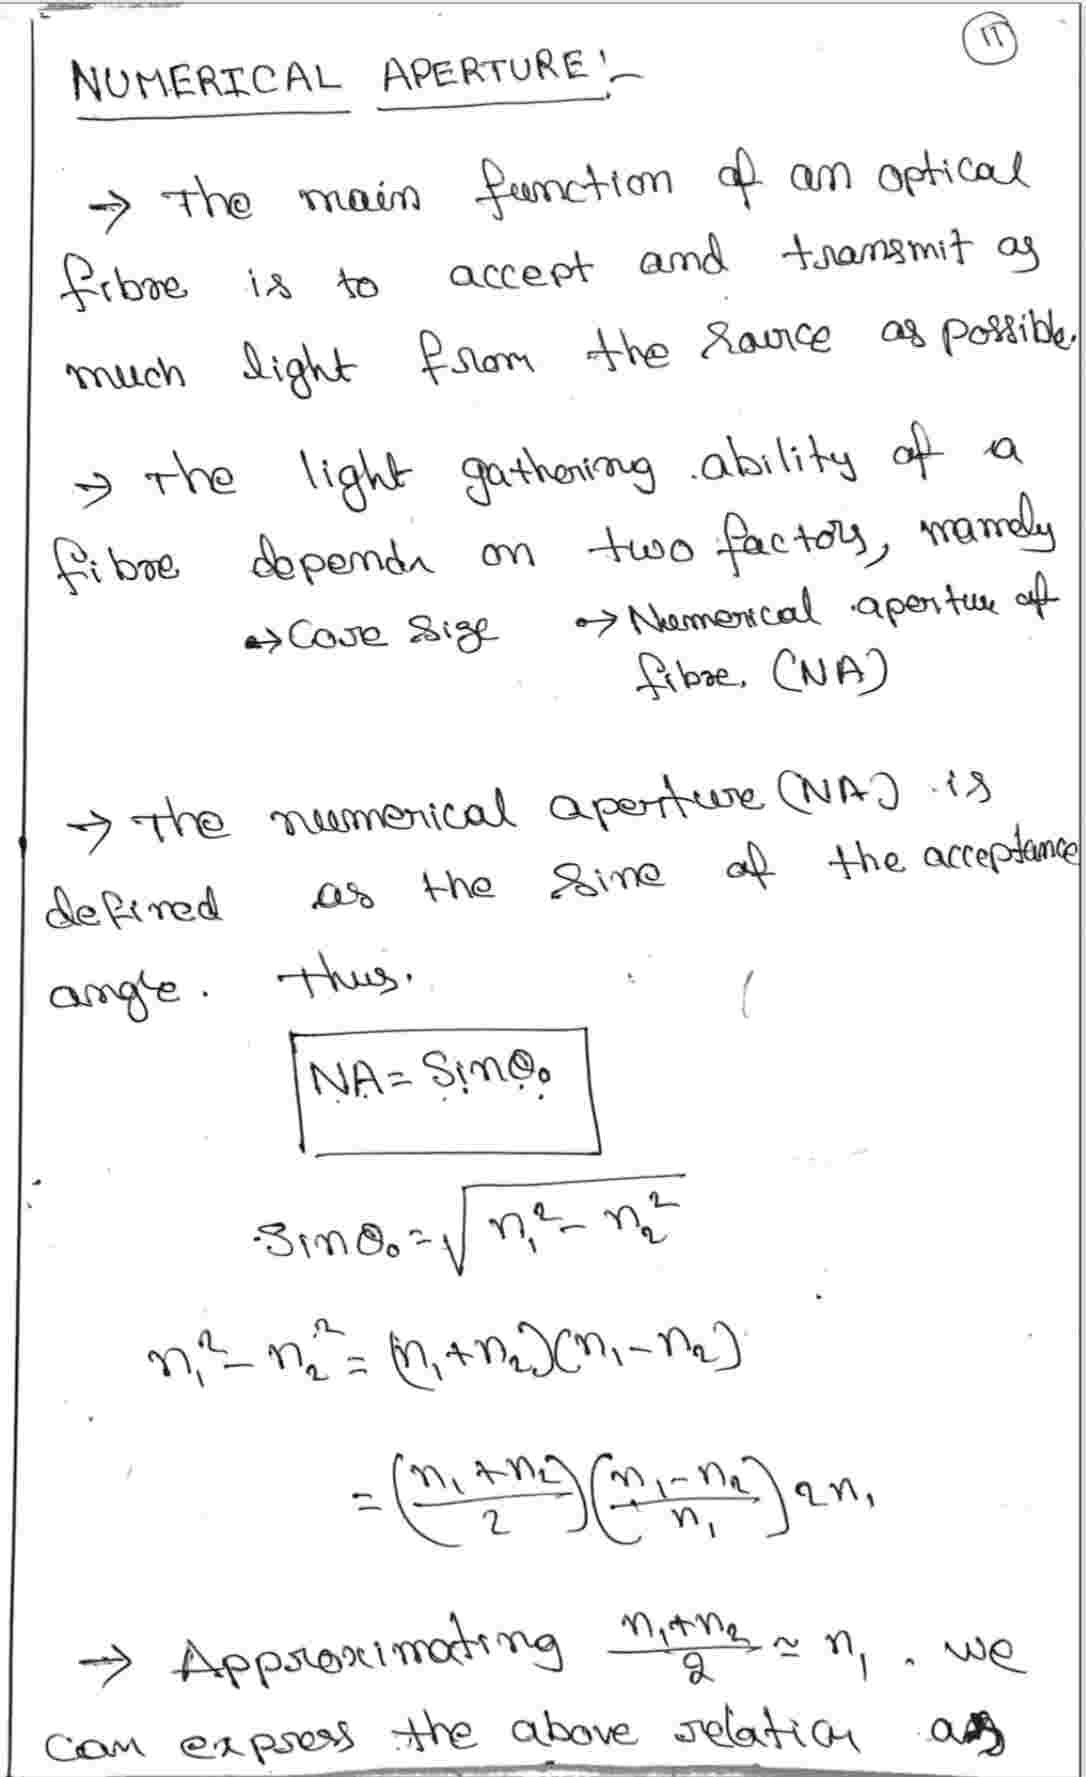 11
NUMERICAL APERTURE:-
→ The main function of an optical
fibre is to accept and transmit as
much light from the source as possible.
→ The light gathering ability of a
fibre depends on two factors, namely
→ Core Size → Numerical aperture of
fibre. (NA)
→ The numerical aperture (NA) is
defined as the sine of the acceptance
angle. Thus.
NA = Sinθ₀
Sinθ₀ = √(n₁² - n₂²)
n₁² - n₂² = (n₁ + n₂)(n₁ - n₂)
= ((n₁ + n₂)/2) ((n₁ - n₂)/n₁) 2n₁
→ Approximating (n₁ + n₂)/2 ≃ n₁. we
can express the above relation as